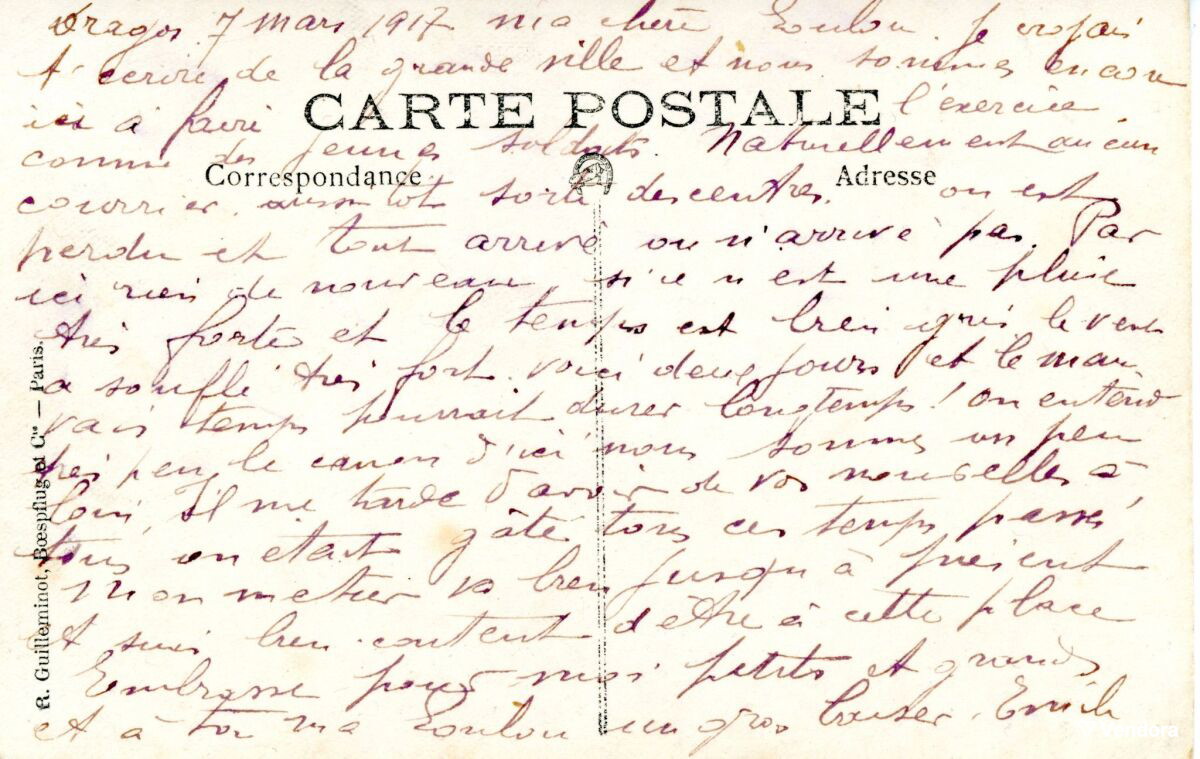 Dragos 7 mars 1917 ma chère Loulou. Je croyais
t'ecrire de la grande ville et nous sommes encore
ici a faire l'exercice
CARTE POSTALE
comme des jeunes soldats. Naturellement aucun
Correspondance Adresse
courrier. aussitot sorti des centres. on est
perdu et tout arrive ou n'arrive pas. Par
ici rien de nouveau, si ce n'est une pluie
très forte et le temps est bien gris, le vent
a soufflé très fort. voici deux jours et le mau-
vais temps pourrait durer longtemps! On entend
très peu le canon d'ici nous sommes un peu
loin, il me tarde d'avoir de vos nouvelles à
tous on etait gâté tous ces temps passés
Mon metier va bien jusqu'à présent
et suis bien content d'être à cette place
Embrasse pour moi petits et grands
et à toi ma Loulou un gros baiser. Emile
R. Guilleminot, Bœspflug et Cie — Paris.